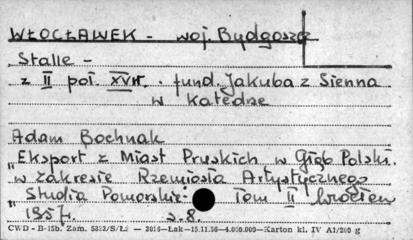 WŁOCŁAWEK - woj. Bydgoszcz
Stalle -
z II poł. XVII. fund. Jakuba z Sienna
w katedrze
Adam Bochnak
"Eksport z Miast Pruskich w Głąb Polski.
w zakresie Rzemiosła Artystycznego
"Studia Pomorskie Tom II Wrocław
1957. s. 8.
CWD - B-15b. Zam. 5332/S/Łi — 3016—Łak—15.11.56—4.000.000—Karton kl. IV A1/200 g